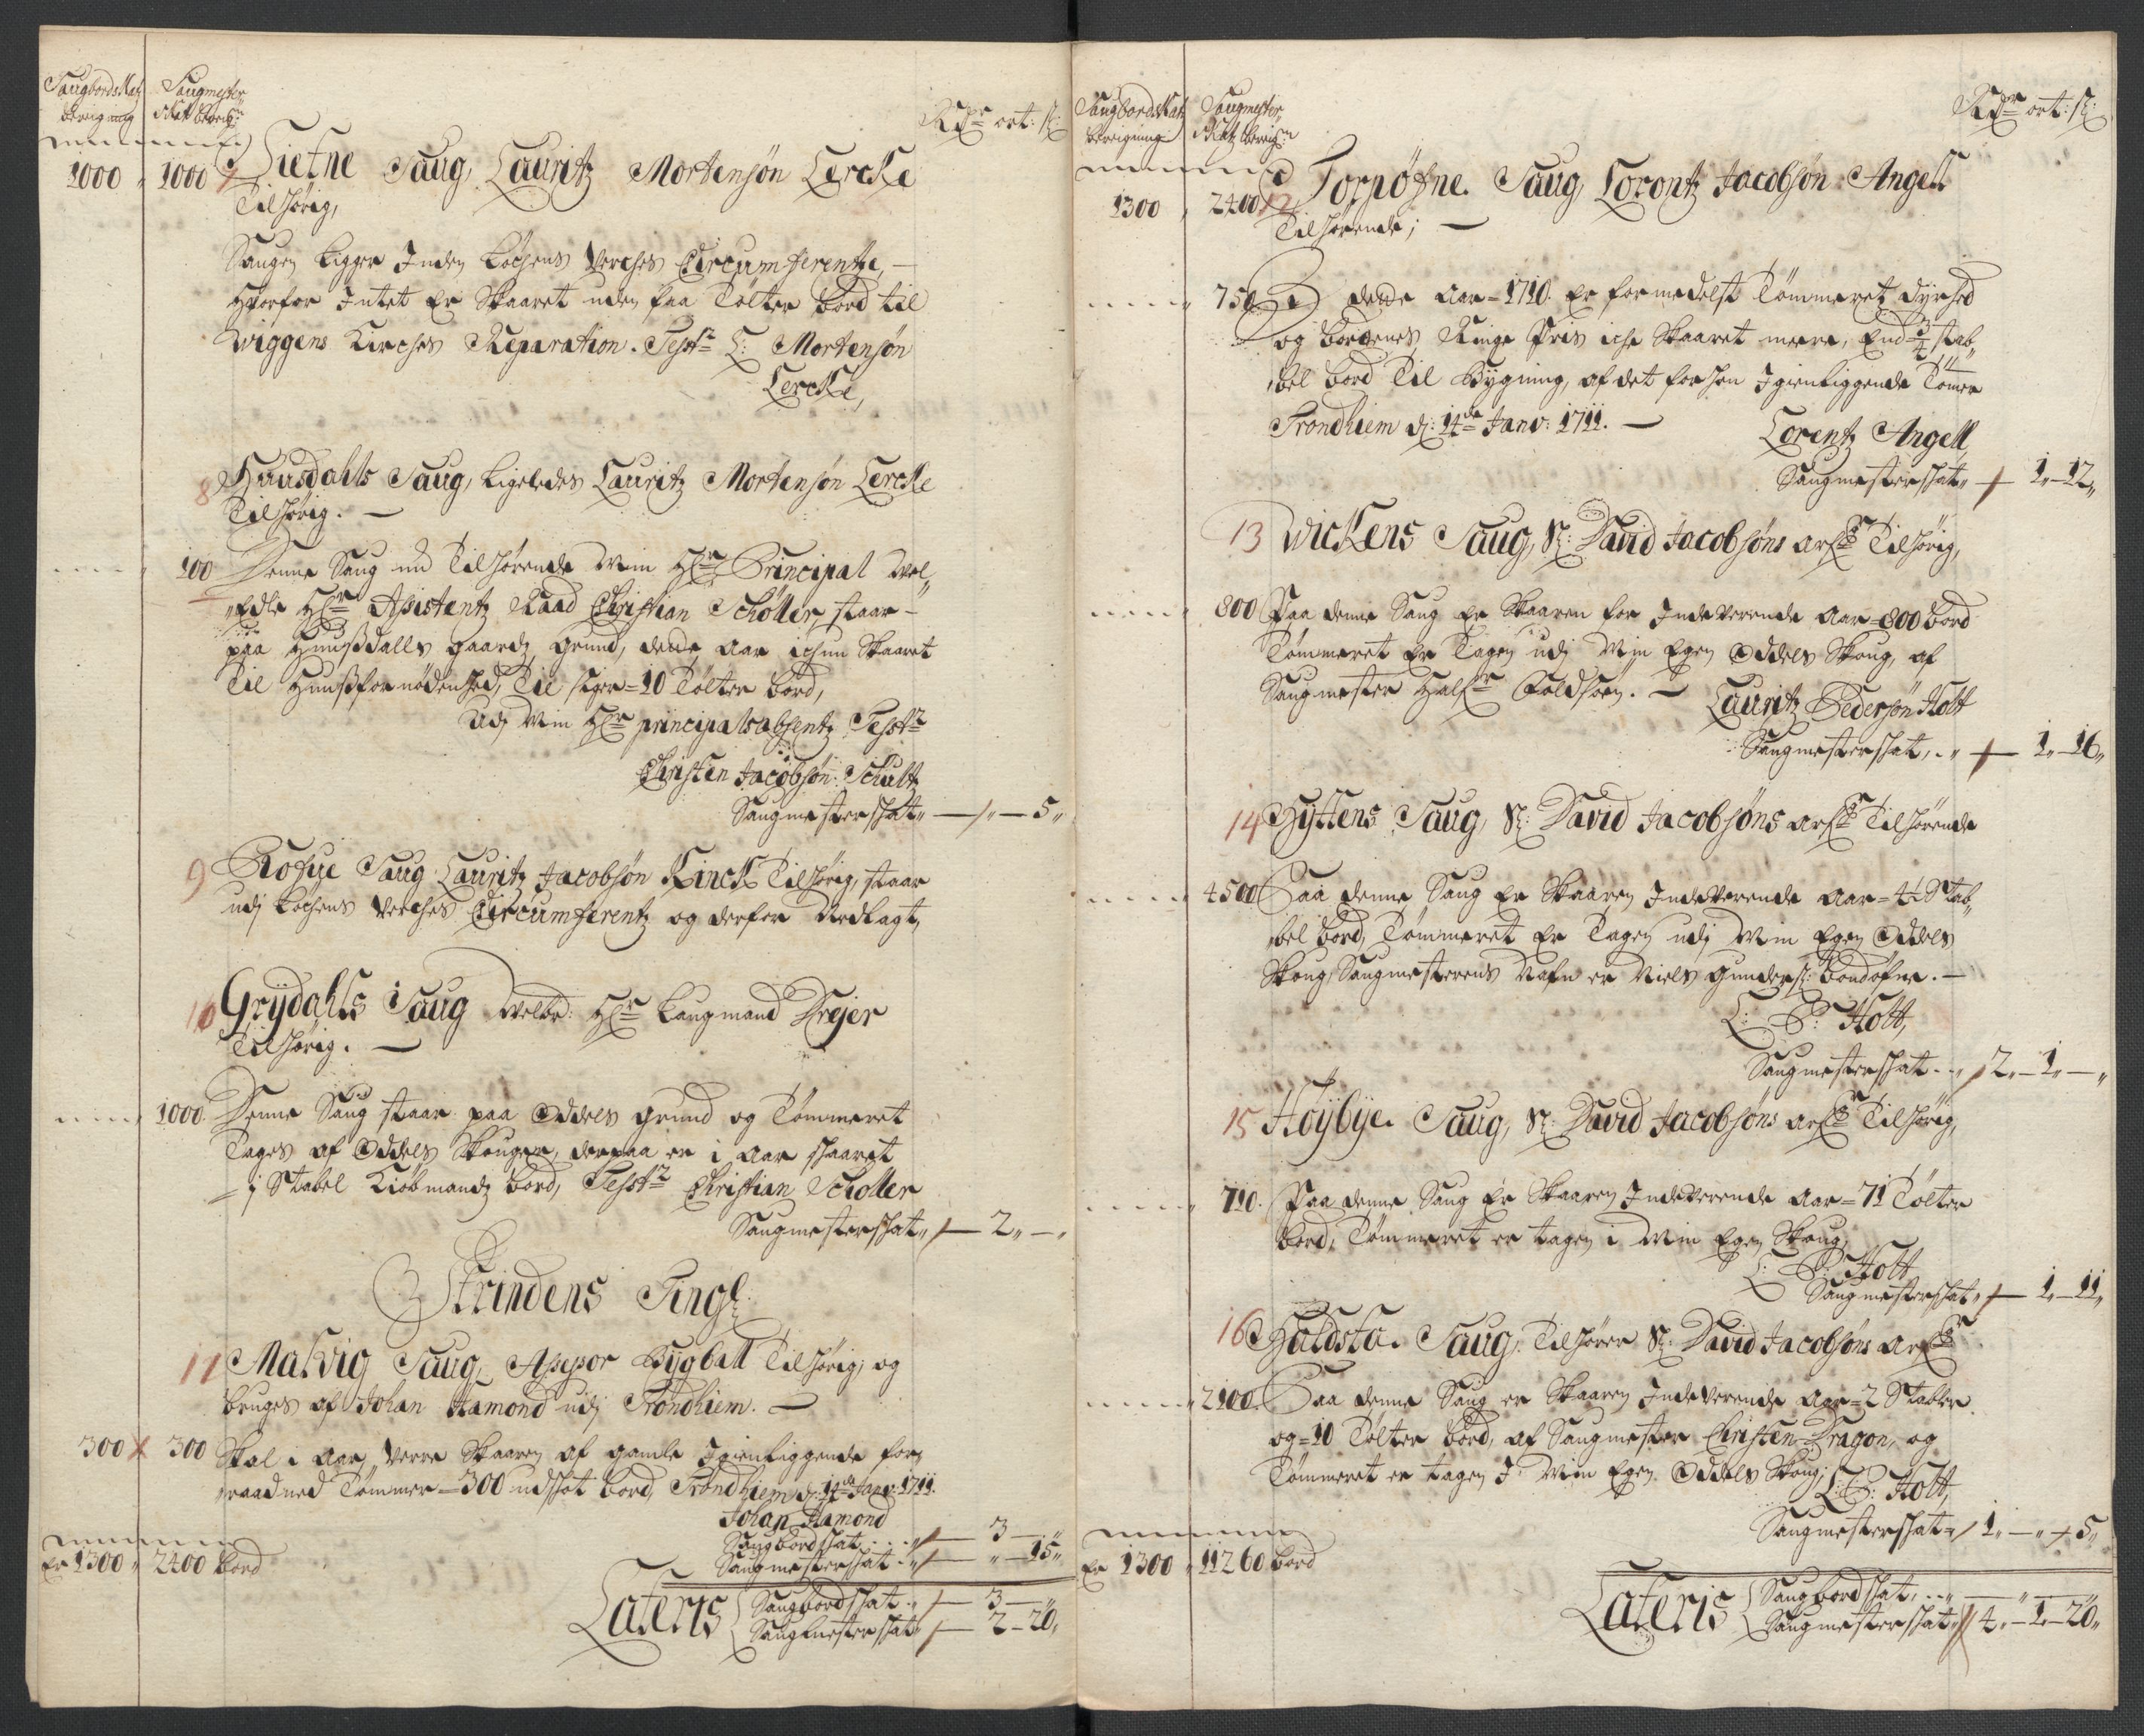 Saugbords Skatz Saugmester
bereigning Skatt bereig:n
Rdr ort: s:
1000 „ 1000 7 Sietne Saug, Lauritz Mortensøn Lercke
Tilhørig,
Saugen ligger Inden Løchens Verches Circumferentze, –
Hvorfor Intet er Skaaret uden faa Tølter bord til
Wiggens Kirches Reparation. Test:r L: Mortensøn
Lercke,
8 Hausdahls Saug, ligeledes Lauritz Mortensøn Lercke
Tilhørig. –
100 Denne Saug nu Tilhørende Min Hr Principal Vel„
„Edle Hr Assistentz Raad Christian Schøller, staar –
paa Hunssdalls gaardz grund, dende Aar ichun Skaaret
Til Huussfornødenhed, Til siger = 10 Tølter bord,
Udj Min Hr principals absentz Test:r
Christen Jacobsøn Schultz
Saugmesterskat „ – „ – 5 „
9 Rofue Saug Lauritz Jacobsøn Kinck Tilhørig, staar
udj Løchens Verches Circumferentz og derfor Nedlagt,
10 Grydahls Saug Velbr: Hr Laugmand Drejer
Tilhørig. –
1000. Denne Saug staar paa Oddels grund og Tømmeret
Tages af Oddels Skougen, derpaa er i Aar skaaret
1 Stabel Kiøbmandz bord, Test:r Christian Schøller
Saugmesterskat „ – 2 „ – „
Strindens Tingl:
11 Malvig Saug, Assessor Bygball Tilhørig, og
bruges af Johan Hamond udj Trondhiem. –
300 300 Skal i Aar Verre Skaaren af gamle Igienliggende for„
„raadned Tømmer = 300 udskot bord, Trondhiem d: 14de Janv: 1711.
Johan Hamond
Saugbordskat . . „ – 3 – „
Saugmesterskat . „ – „ – 15 „
Er 1300 „ 2400 bord
Lateris Saugbordskat . „ – 3 – „
Saugmesterskat „ – 2 – 20 „
Saugbords Skatz Saugmester
bereigning Skatz bereig:n
Rdr ort: s:
1300 „ 2400 12 Torpøfne Saug, Lorentz Jacobsøn Angell
Tilhørende; –
750 dende Aar = 1710. Er formedelst Tømmeretz dyrhed
og bordenes Ringe Pris iche Skaaret meere, End 3/4 stab„
„bel bord Til Bygning, af det forhen Igienliggende Tømer
Trondhiem d: 14de Janv: 1711. – Lorentz Angell,
Saugmesterskat „ – 1 „ – 12 „
13 Wickens Saug, Sl: David Jacobsøns arf:r Tilhørig,
800 Paa denne Saug Er Skaaren for Indeverende Aar = 800 bord
Tømmeret Er Tagen udj Min Egen Oddels Skoug, af
Saugmester Foldsøen. – Lauritz Pedersøn Holt
Saugmesterskat, . „ – 1 „ – 16 „
14 Hyttens Saug, Sl: David Jacobsøns arf:r Tilhørende
4500 Paa denne Saug Er Skaaren Indeverende Aar = 4½ Stab„
„bel bord, Tømmeret Er Tagen udj Min Egen Oddels
Skoug, Saugmesterens Nafn er Niels Gunders: bondøfne. –
L: P: Holt,
Saugmesterskat . . „ 2 „ – 1 „ – „
15 Høybye Saug, Sl: David Jacobsøns arf:r Tilhørig,
710. Paa denne Saug Er Skaaren Indeverende Aar = 71 Tølter
bord, Tømmeret er tagen i Min Egen Skoug,
L: P: Holt
Saugmesterskat „ – 1 „ – 11 „
16 Huldsta Saug, Tilhører Sl: David Jacobsøns arf:r
2100. Paa denne Saug er Skaaren Indeverende Aar = 2 Stabler
og = 10 Tølter bord, af Saugmester Christen Dragon, og
Tømmeret er tagen I Min Egen Oddels Skoug;
L: P: Holt,
Saugmesterskat „ 1 „ – „ – 5 „
Er 1300 „ 11260 bord
Lateris Saugbordskat, . . „ – „ – „
Saugmesterskat „ 4 „ – 1 – 20 „